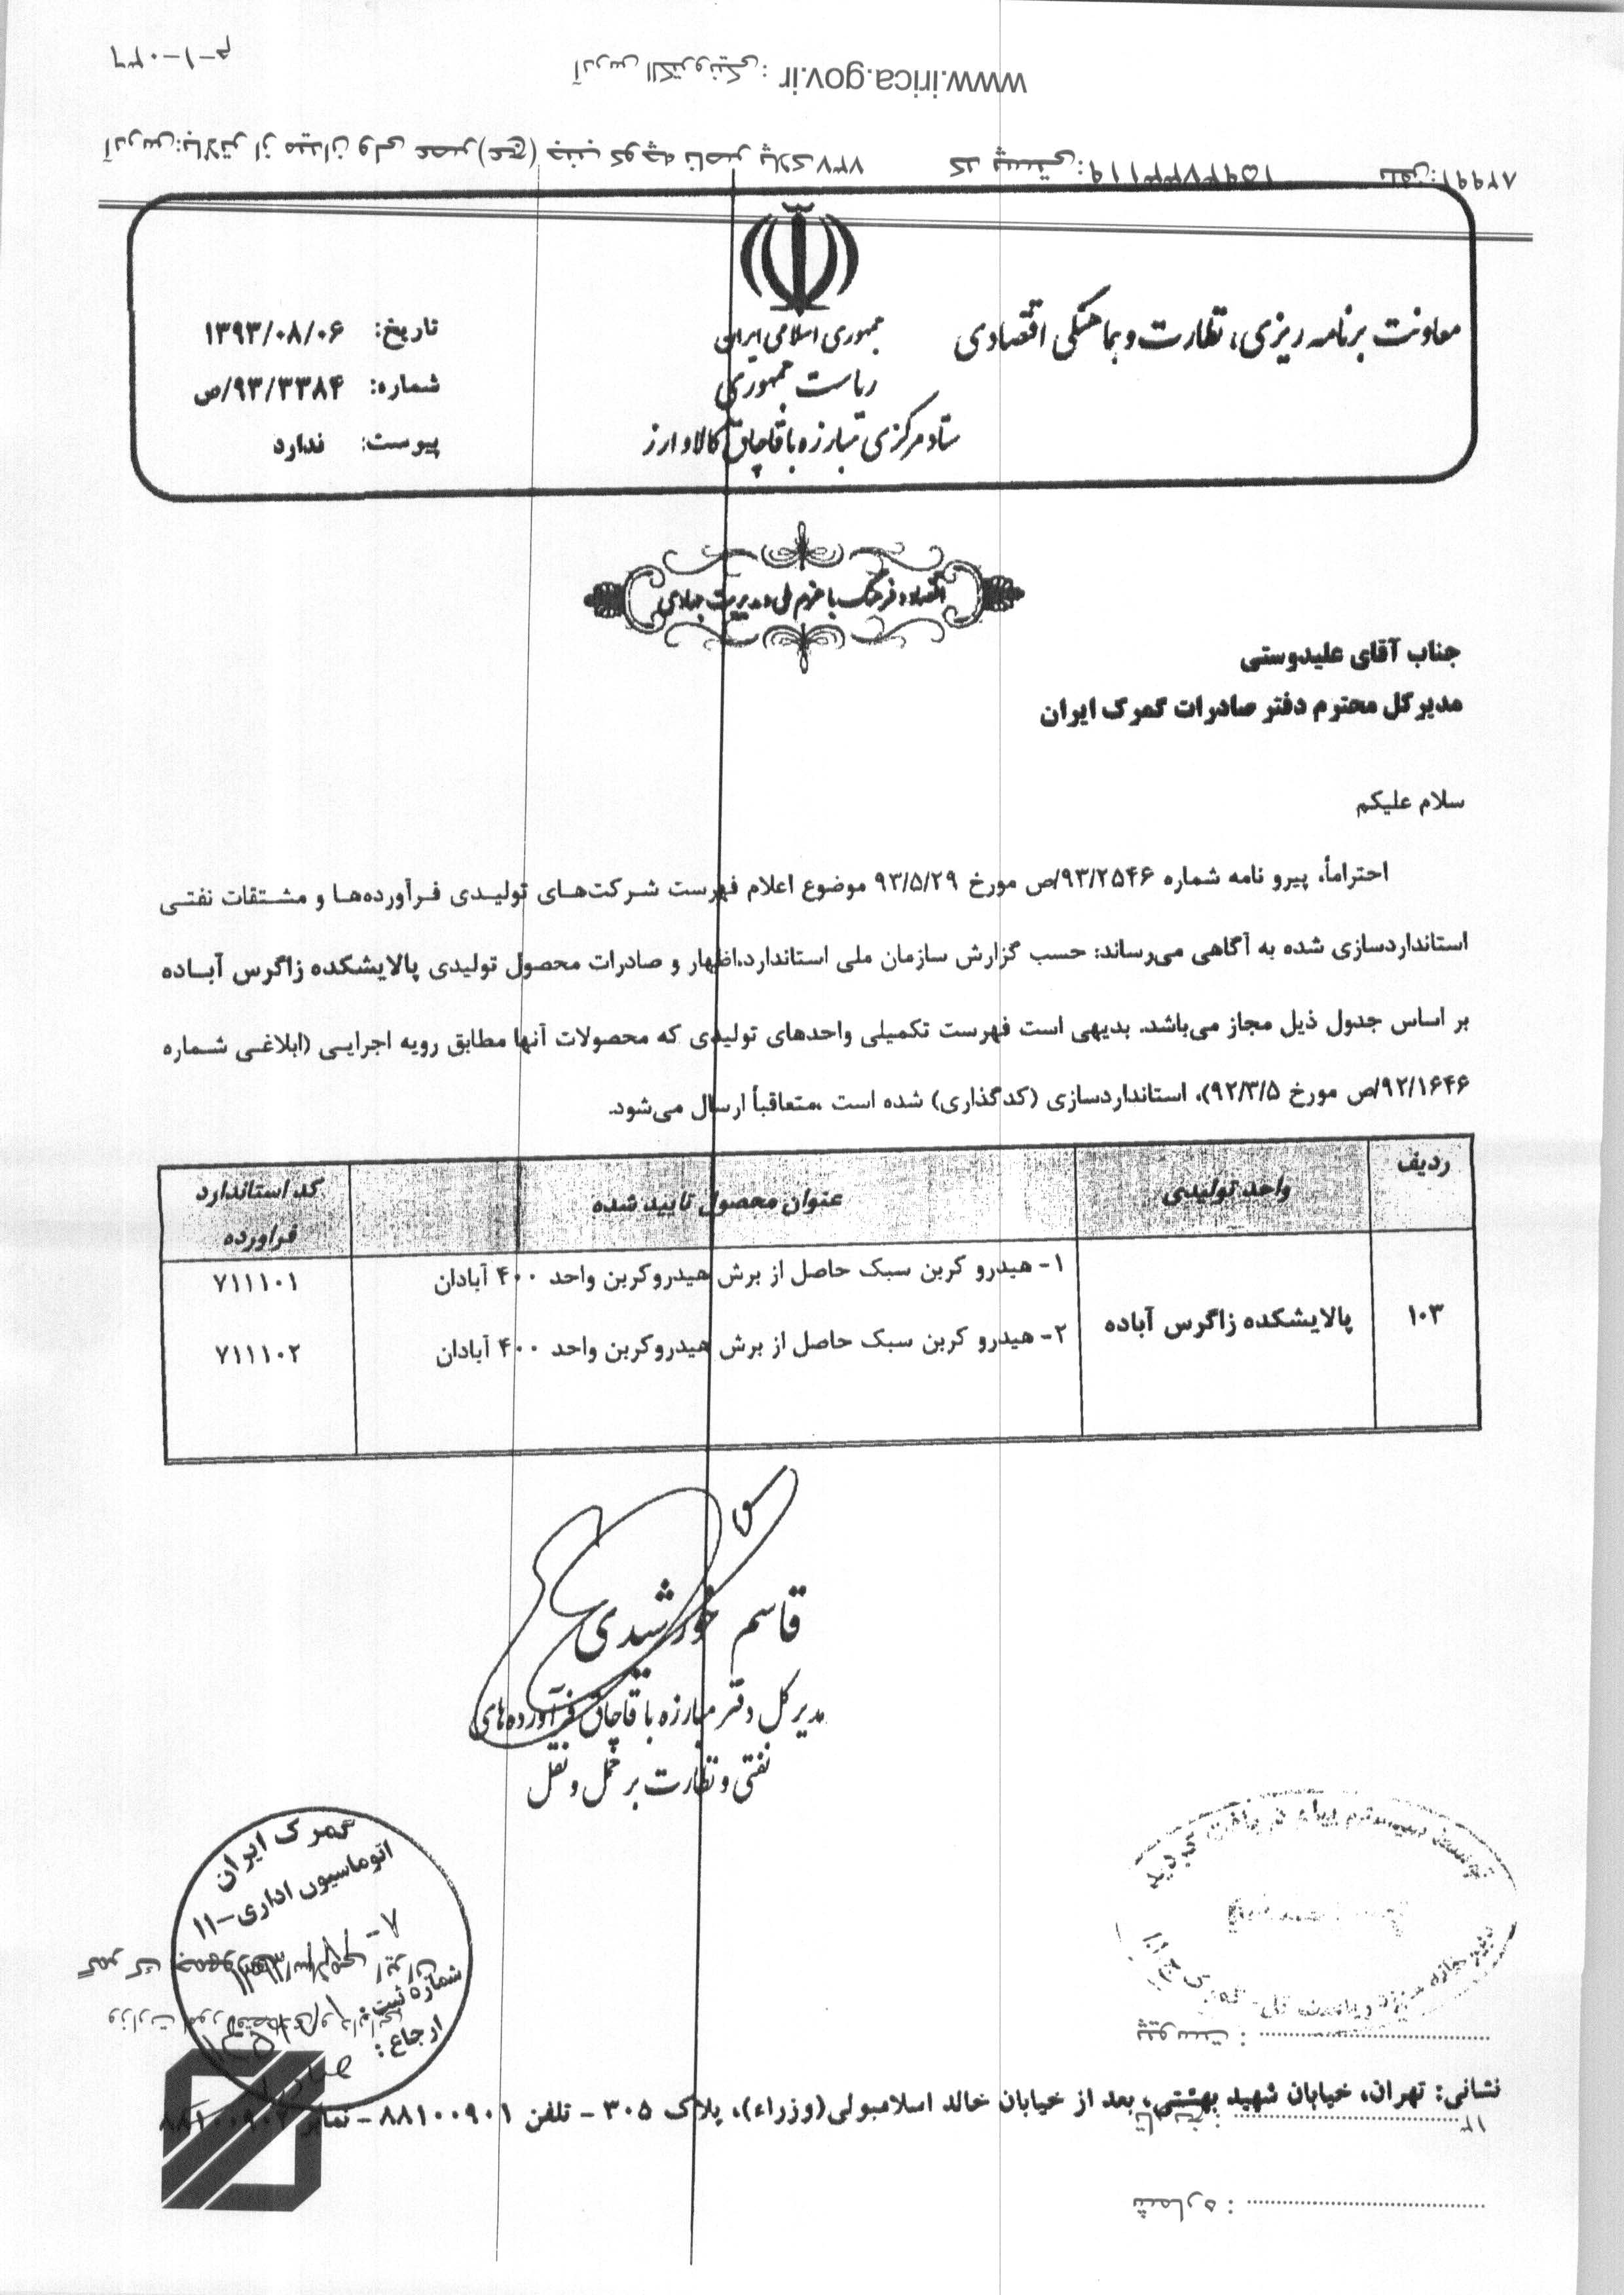 www.irica.gov.ir آدرس الکترونیکی :
م-۱-۰۳۶
آدرس:بالاتر از میدان ولی عصر (عج) جنب کوچه ناصر پلاک ۷۳۷
کد پستی:
تلفن:
معاونت برنامه ریزی، نظارت و هماهنگی اقتصادی
جمهوری اسلامی ایران
ریاست جمهوری
ستاد مرکزی مبارزه با قاچاق کالا و ارز
تاریخ: ۱۳۹۳/۰۸/۰۶
شماره: ۹۳/۳۳۸۴/ص
پیوست: ندارد
اقتصاد و فرهنگ با عزم ملی و مدیریت جهادی
جناب آقای علیدوستی
مدیرکل محترم دفتر صادرات گمرک ایران
سلام علیکم
احتراماً، پیرو نامه شماره ۹۳/۲۵۴۶/ص مورخ ۹۳/۵/۲۹ موضوع اعلام فهرست شرکت‌های تولیدی فرآورده‌ها و مشتقات نفتی
استانداردسازی شده به آگاهی می‌رساند: حسب گزارش سازمان ملی استاندارد،اظهار و صادرات محصول تولیدی پالایشکده زاگرس آباده
بر اساس جدول ذیل مجاز می‌باشد. بدیهی است فهرست تکمیلی واحدهای تولیدی که محصولات آنها مطابق رویه اجرایی (ابلاغی شماره
۹۲/۱۶۴۶/ص مورخ ۹۲/۳/۵)، استانداردسازی (کدگذاری) شده است ،متعاقباً ارسال می‌شود.
ردیف واحد تولیدی عنوان محصول تایید شده کد استاندارد فراورده
۱۰۳ پالایشکده زاگرس آباده
۱- هیدرو کربن سبک حاصل از برش هیدروکربن واحد ۴۰۰ آبادان ۷۱۱۱۰۱
۲- هیدرو کربن سبک حاصل از برش هیدروکربن واحد ۴۰۰ آبادان ۷۱۱۱۰۲
قاسم خورشیدی
مدیر کل دفتر مبارزه با قاچاق فرآورده‌های
نفتی و نظارت بر حمل و نقل
گمرک ایران
اتوماسیون اداری-۱۱
شماره ثبت:
ارجاع:
گمرک جمهوری اسلامی ایران
وزارت امور اقتصادی و دارایی
توسط سیستم پیام دریافت گردید
پیوست :
نشانی: تهران، خیابان شهید بهشتی، بعد از خیابان خالد اسلامبولی(وزراء)، پلاک ۳۰۵ - تلفن ۸۸۱۰۰۹۰۱ - نمابر ۸۸۱۰۰۹۰۲
تاریخ :
شماره :